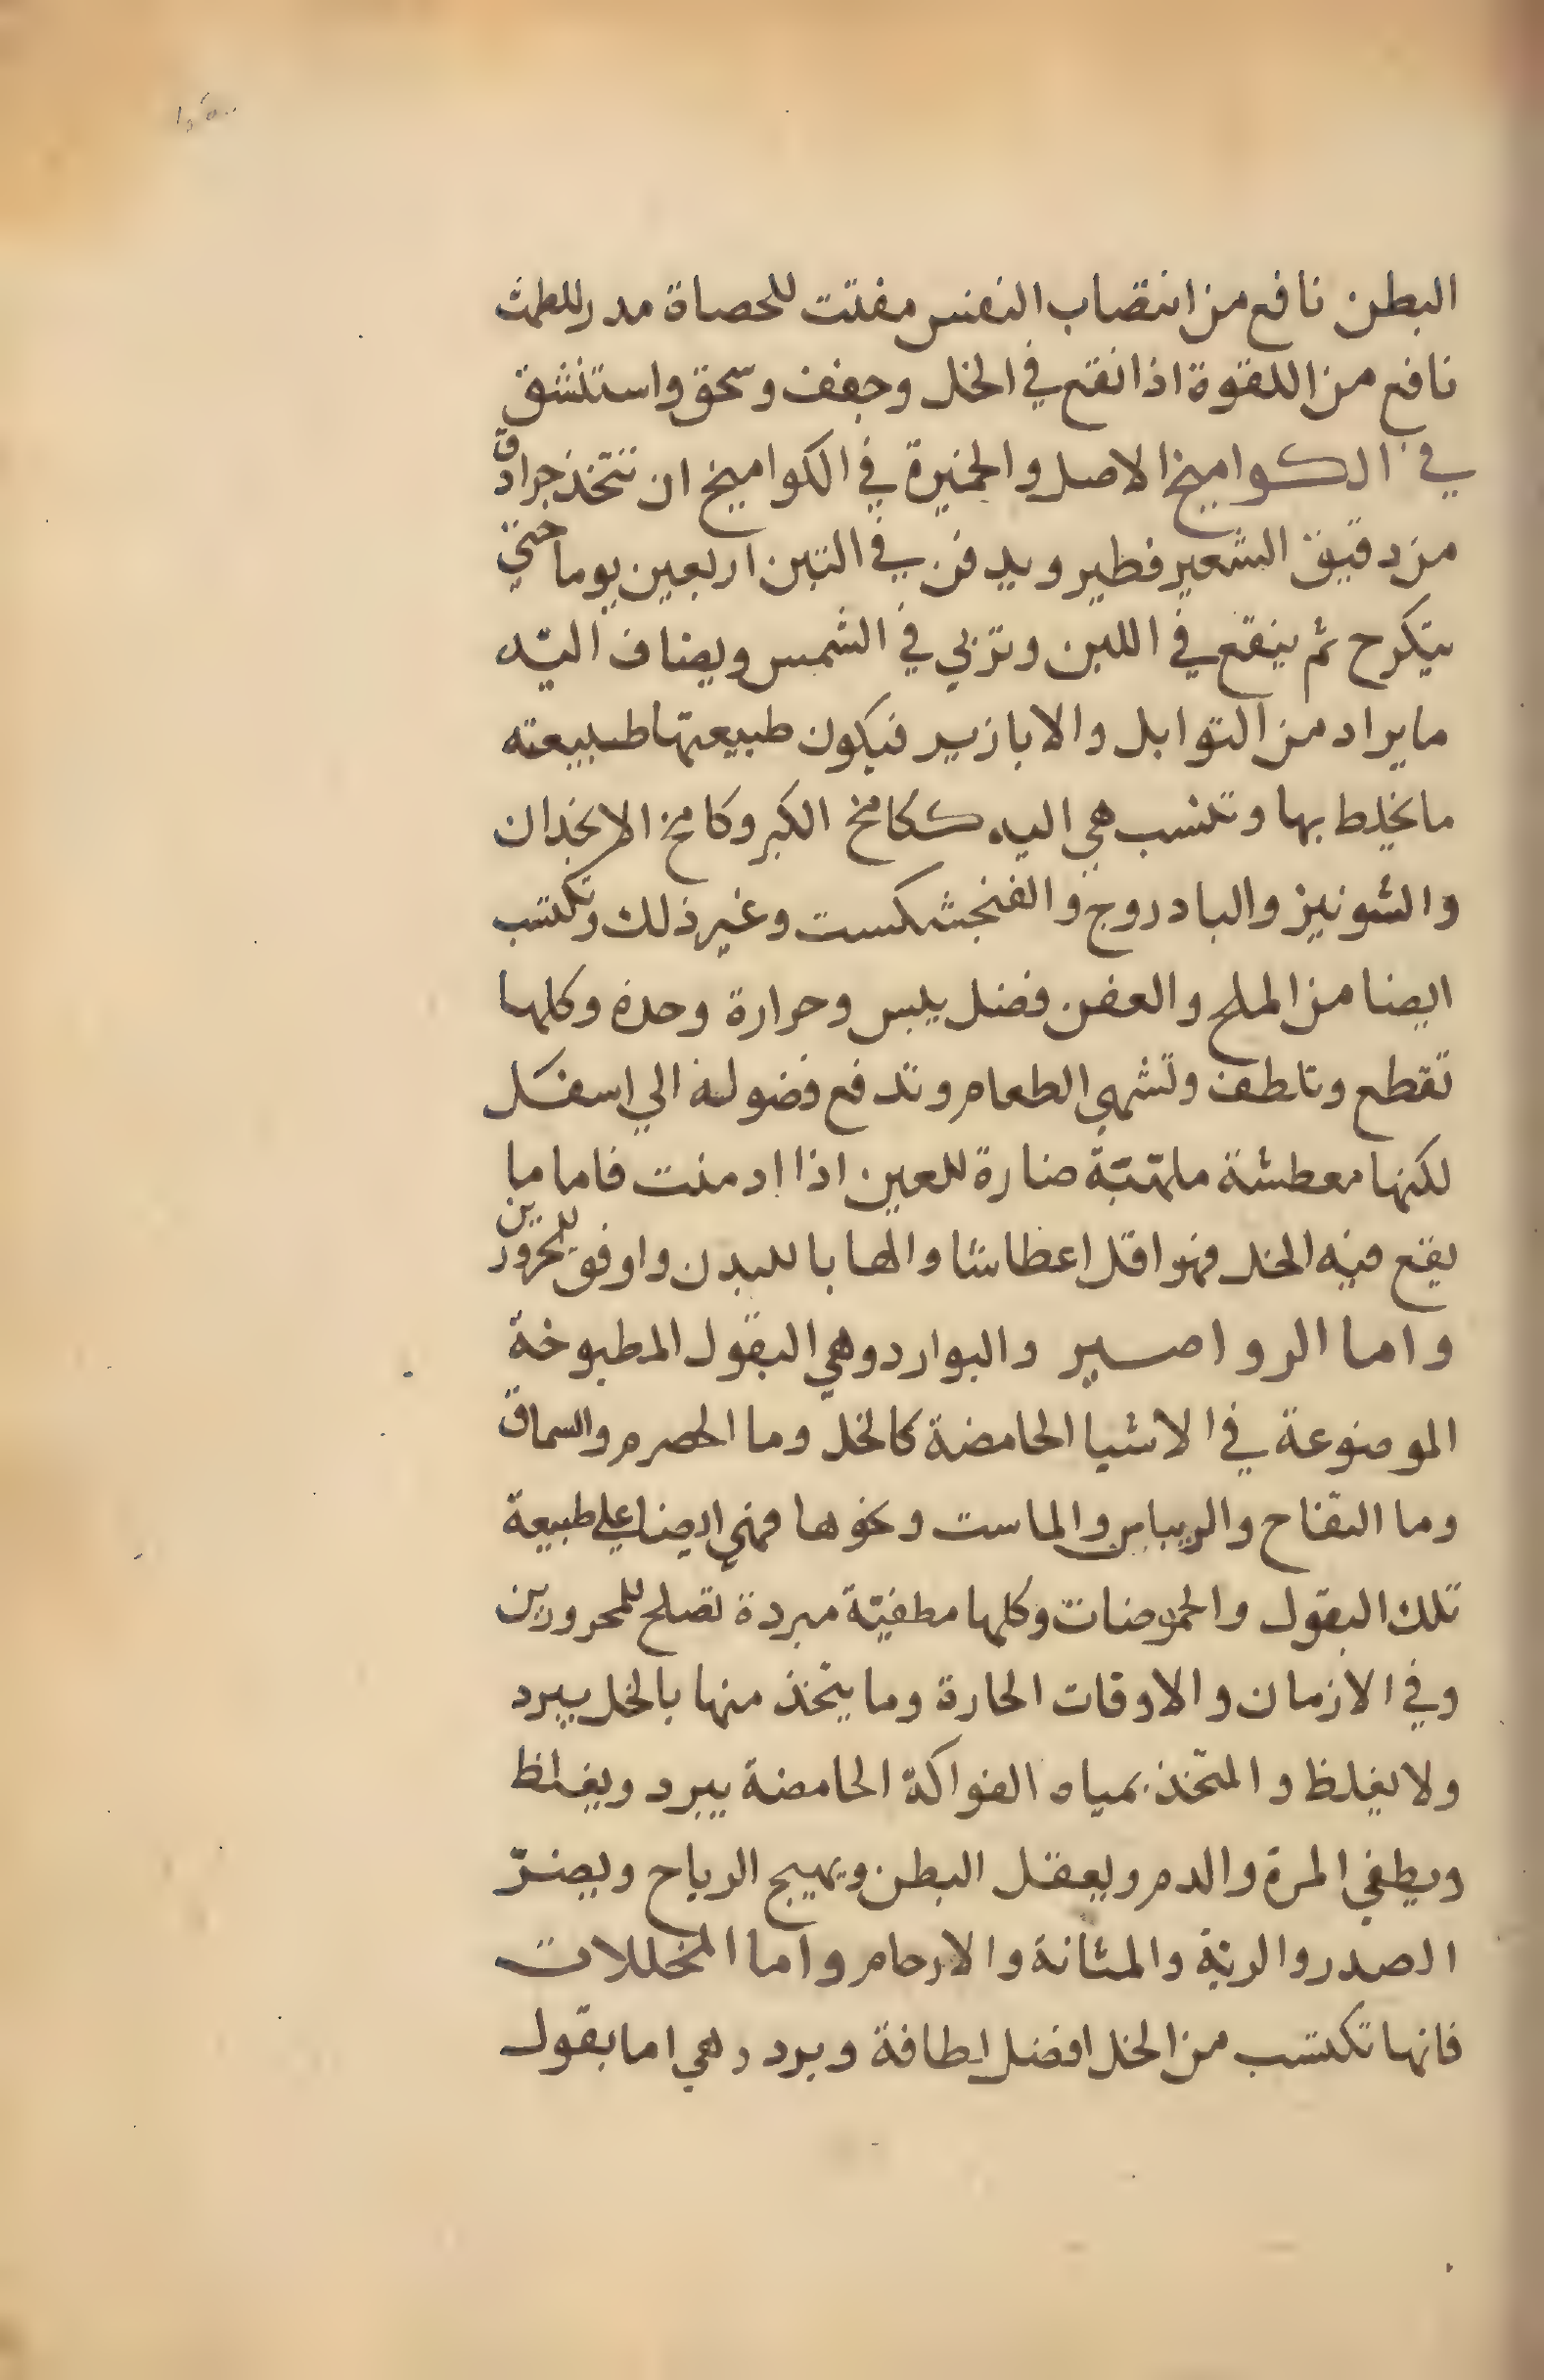 البطن نافع من انتصاب النفس مفتت للحصاة مدر للطمث
نافع من اللقوة اذا نقع في الخل وجفف وسحق واستنشق
في الكواميخ الاصل والخميرة في الكواميخ ان تتخذ جرادق
من دقيق الشعير فطير ويدفن في التبن اربعين يوما حتي
يتكرج ثم ينقع في اللبن وتربي في الشمس ويضاف اليه
ما يراد من التوابل والابازير فيكون طبيعتها طبيعته
ما يخلط بها وتنسب هي اليه ككامخ الكبر وكامخ الانجذان
والشونيز والبادروج والفنجشكست وغير ذلك وتكتسب
ايضا من الملح والعفن فضل يبس وحرارة وحدة وكلها
تقطع وتلطف وتشهي الطعام وتدفع فضوله الي اسفل
لكنها معطشة ملهبة ضارة للعين اذا ادمنت فاما ما
يقع فيه الخل فهو اقل اعطاشا والهابا للبدن واوفق للمحرورين
واما الرواصير والبوارد وهي البقول المطبوخة
الموضوعة في الاشيا الحامضة كالخل وما الحصرم والسماق
وما التفاح والريباس والماست ونحوها فهي ايضا علي طبيعة
تلك البقول والحموضات وكلها مطفية مبردة تصلح للمحرورين
وفي الازمان والاوقات الحارة وما يتخذ منها بالخل يبرد
ولا يغلظ والمتخذ بمياه الفواكة الحامضة يبرد ويغلظ
ويطفي المرة والدم ويعقل البطن ويهيج الرياح ويضر
الصدر والرية والمثانة والارحام واما المخللات
فانها تكتسب من الخل افضل لطافة وبرد وهي اما بقول